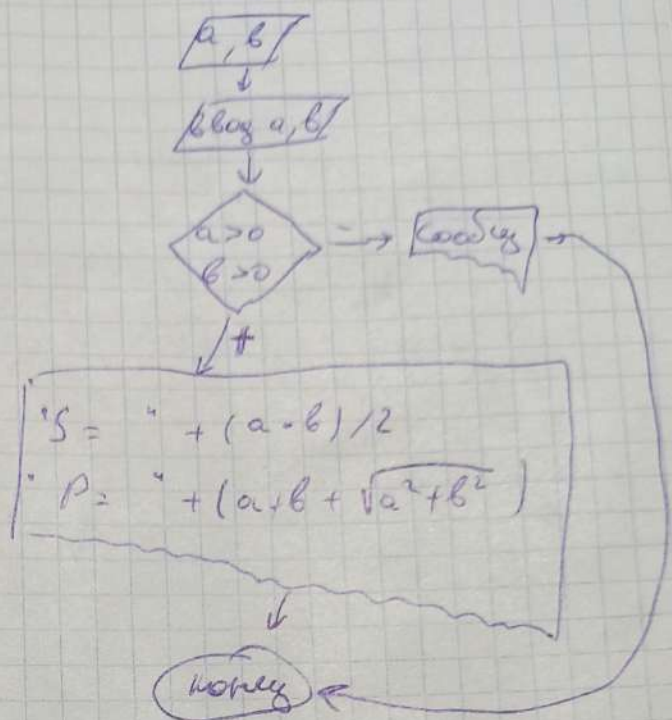 a, в
ввод a, в
a>0
в>0
-
сообщ
+
"S = " + (a·в)/2
"P = " + (a+в + √a²+в²)
конец